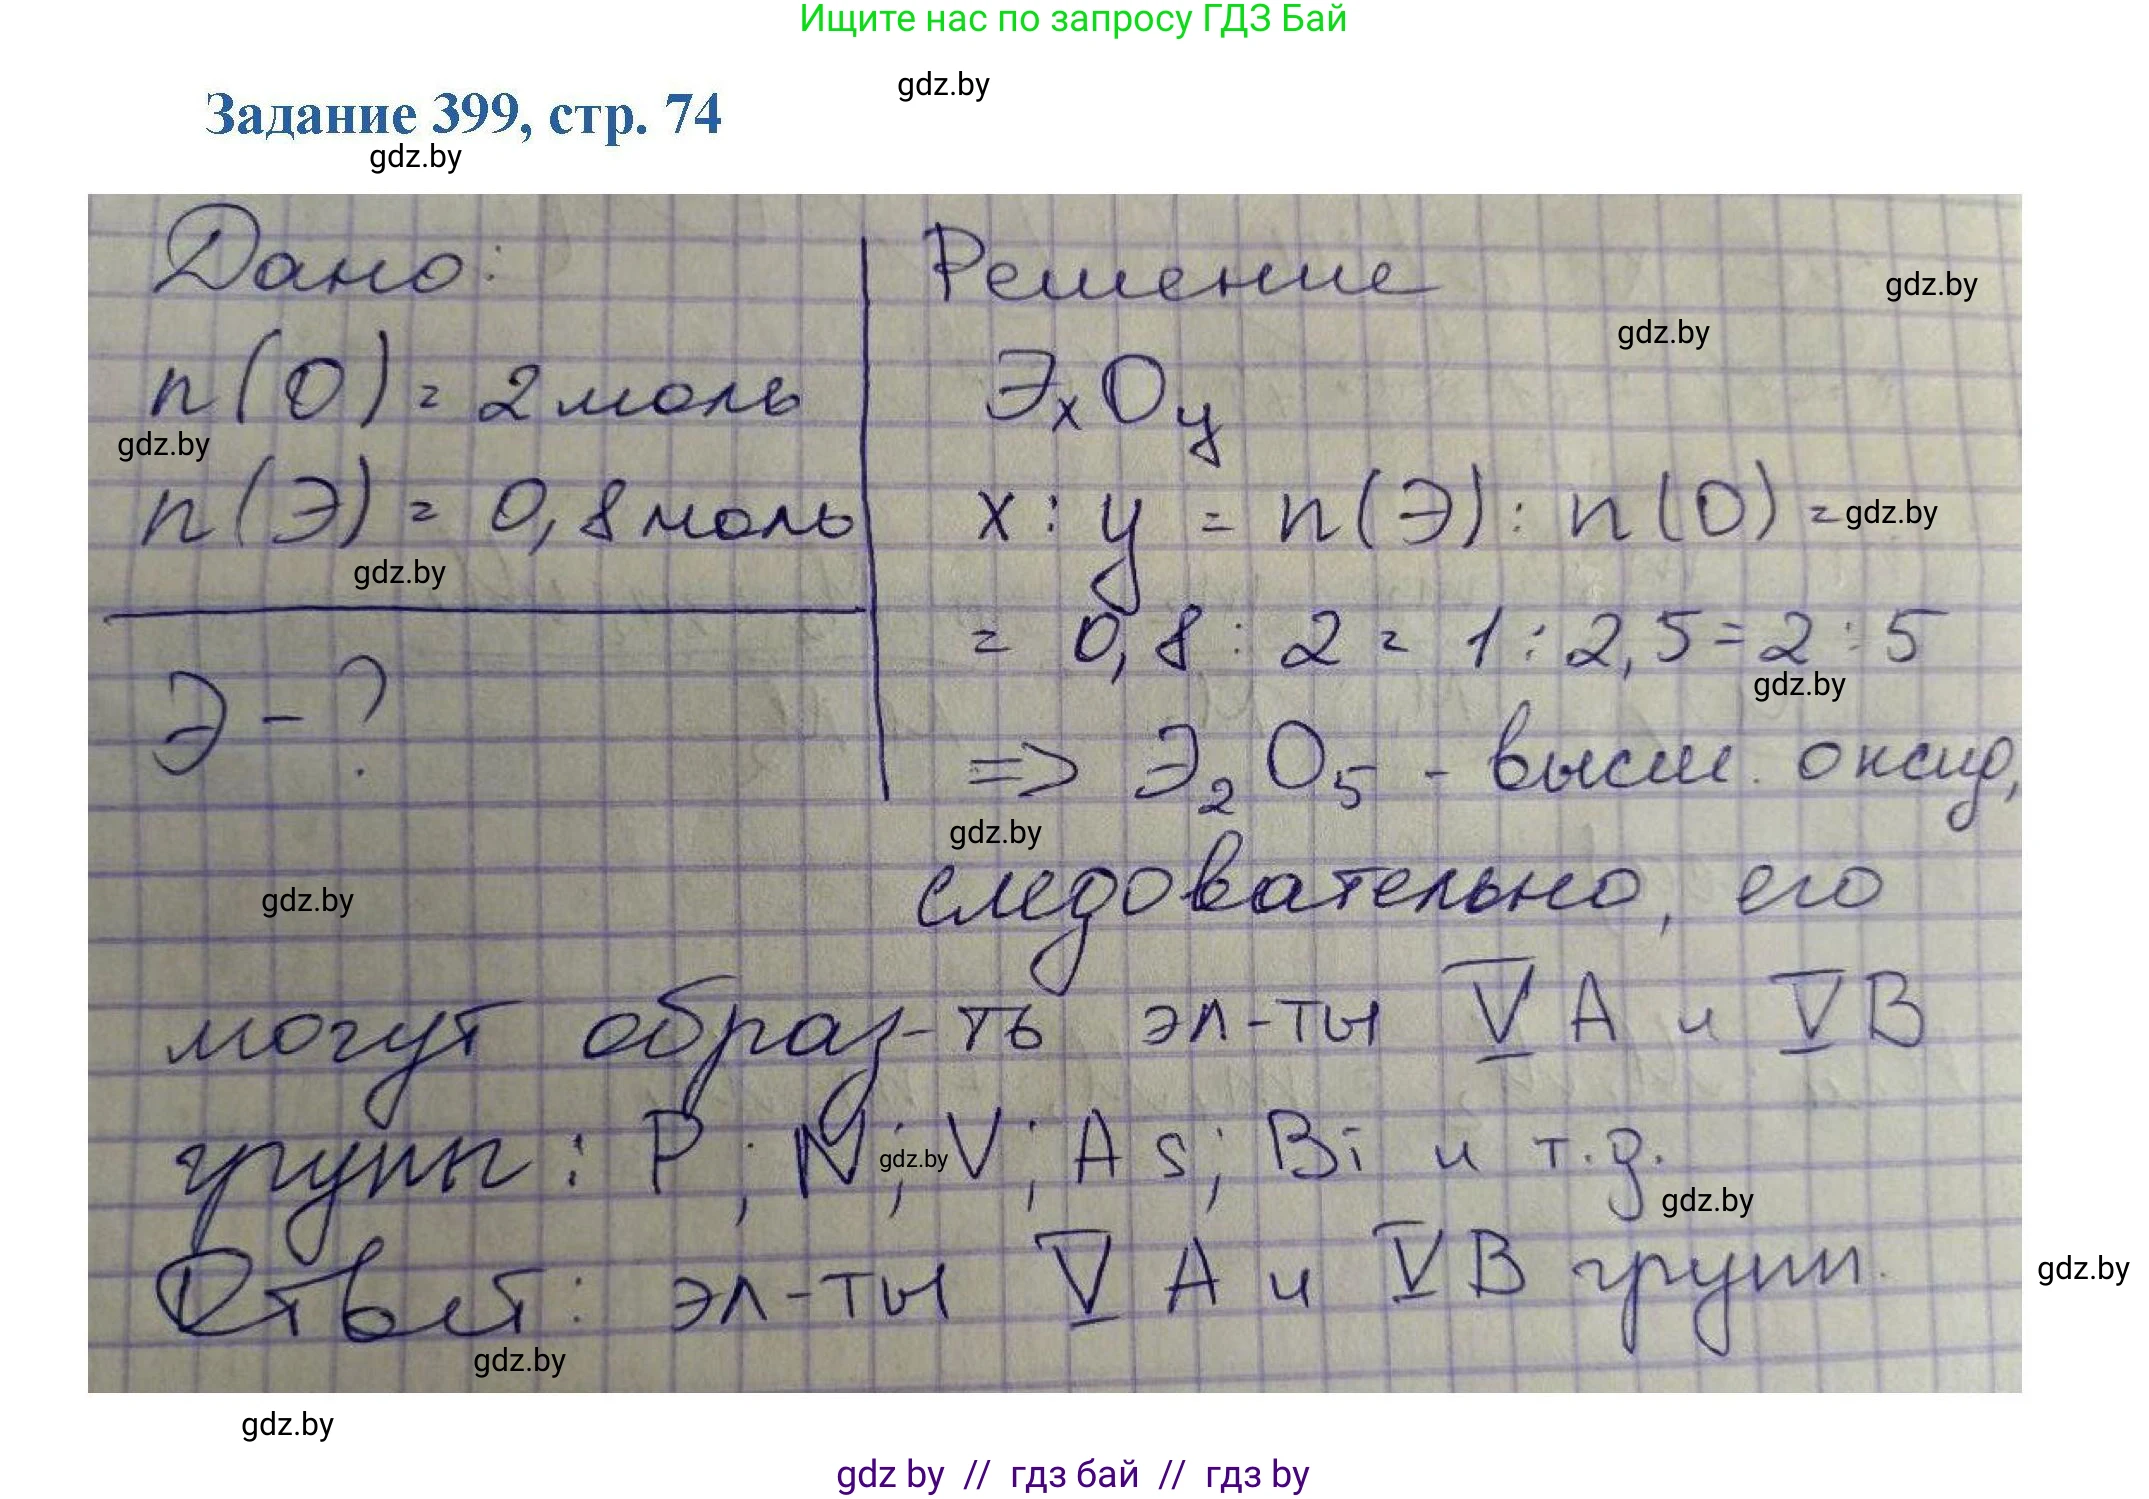 Ищите нас по запросу ГДЗ Бай
gdz.by
Задание 399, стр. 74
gdz.by
Дано:
n(O) = 2 моль
gdz.by
n(Э) = 0,8 моль
gdz.by
Э - ?
Решение
gdz.by
gdz.by
ЭxOy
x : y = n(Э) : n(O) =
gdz.by
= 0,8 : 2 = 1 : 2,5 = 2 : 5
gdz.by
=> Э2O5 - высш. оксид,
gdz.by
gdz.by
следовательно, его
могут образ-ть эл-ты V А и V В
группы: P; N; V; As; Bi и т.д.
gdz.by
gdz.by
Ответ: эл-ты V А и V В групп.
gdz.by
gdz.by
gdz.by
gdz by // гдз бай // гдз by